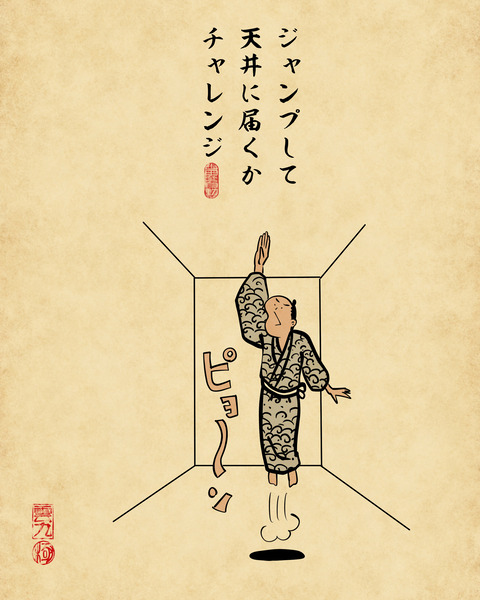 ジャンプして
天井に届くか
チャレンジ
ピョーン